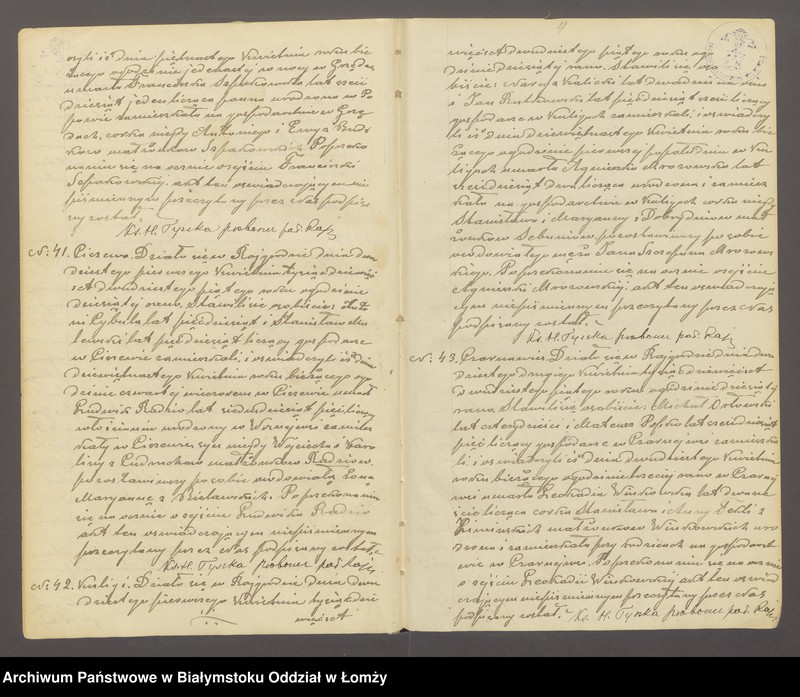 czyli iż dnia piętnastego Kwietnia roku bie
żącego o godzinie jedenastej w nocy w Grzę
umarła Franciszka lat sześć
dziesiąt jeden licząca panna urodzona w Po
powie zamieszkała na gospodarstwie w Grzę
dach, córka niegdy Antoniego i Ewy z
małżonków Po przeko
naniu się naocznie o zejściu Franciszki
akt ten oświadczającym nie
piśmiennym przeczytany przez Nas podpisa
ny został.
Ks. H. Tyszka proboszcz par. Rajg.
№ 41. Ciszewo. Działo się w Rajgrodzie dnia dwu
dziestego pierwszego Kwietnia tysiąc dziewię
ćset dwudziestego piątego roku o godzinie
dziesiątej rano. Stawili się osobiście:
Cybula lat pięćdziesiąt i Stanisław
lat pięćdziesiąt liczący gospodarze
w Ciszewie zamieszkali, i oświadczyli iż dnia
dziewiętnastego Kwietnia roku bieżącego o go
dzinie czwartej wieczorem w Ciszewie umarł
Ludwik Radzio lat siedemdziesiąt pięć liczący
włościanin urodzony w Woźnejwsi zamiesz
kały w Ciszewie, syn niegdy Wojciecha i Karo
liny z małżonków Radziów,
pozostawiwszy po sobie owdowiałą żonę
Maryannę z Bielawskich. Po przekonaniu
się naocznie o zejściu Ludwika Radzio
akt ten oświadczającym niepiśmiennym
przeczytany przez Nas podpisany został.
Ks. H. Tyszka proboszcz par. Rajg.
№ 42. Kuligi. Działo się w Rajgrodzie dnia dwu
dziestego pierwszego Kwietnia tysiąc dzie
więćset
4
więćset dwudziestego piątego roku o go
dzinie dziesiątej rano. Stawili się oso
biście: Kalicki lat dwadzieścia
i Jan Rutkowski lat pięćdziesiąt sześć liczący
gospodarze w Kuligach zamieszkali, i oświadczy
li iż dnia dziewiętnastego Kwietnia roku bie
żącego o godzinie pierwszej po południu w Ku
ligach umarła Agnieszka Mrozowska lat
sześćdziesiąt dwa licząca urodzona i zamiesz
kała na gospodarstwie w Kuligach córka niegdy
Stanisława i Maryanny z Dobrydniów mał
żonków pozostawiwszy po sobie
owdowiałego męża Jana Szczepana Mrozow
skiego. Po przekonaniu się naocznie o zejściu
Agnieszki Mrozowskiej, akt ten oświadczają
cym niepiśmiennym przeczytany przez Nas
podpisany został.
Ks. H. Tyszka proboszcz par. Rajg.
№ 43. Czarnawieś. Działo się w Rajgrodzie dnia dwu
dziestego drugiego Kwietnia tysiąc dziewięćset
dwudziestego piątego roku o godzinie dziesiątej
rano. Stawili się osobiście: Michał Orłowski
lat czterdzieści i Mateusz lat sześćdziesiąt
pięć liczący gospodarze w Czarnejwsi zamieszka
li, i oświadczyli iż dnia dwudziestego Kwietnia
roku bieżącego o godzinie trzeciej rano w Czarnej
wsi umarła Leokadia Wiśkowska lat dwana
ście licząca córka Stanisława i Anny Tekli z
Kimińskich małżonków Wiśkowskich uro
dzona i zamieszkała przy rodzicach na gospodarst
wie w Czarnejwsi. Po przekonaniu się naocznie
o zejściu Leokadii Wiśkowskiej akt ten oświad
czającym niepiśmiennym przeczytany przez Nas
podpisany został. Ks. H. Tyszka proboszcz par. Rajg.
Archiwum Państwowe w Białymstoku Oddział w Łomży